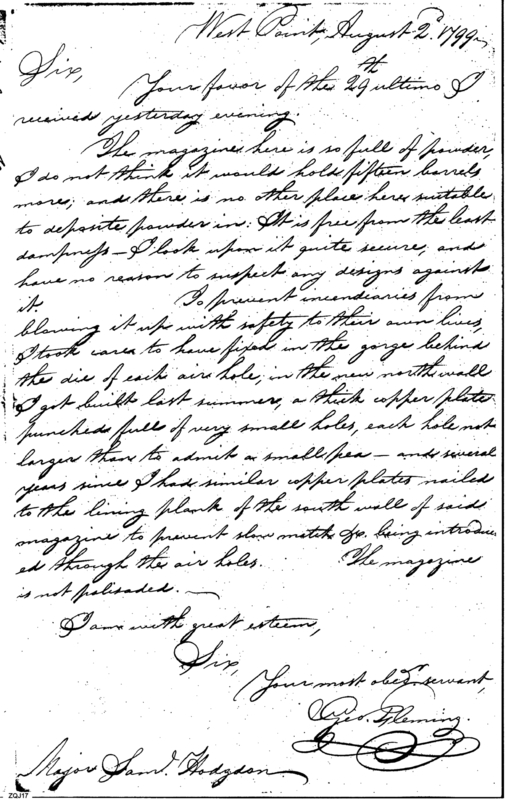 West Point, August 2d. 1799.
Sir,
Your favor of the 29th ultimo I
received yesterday evening.
The magazine here is so full of powder,
I do not think it would hold fifteen barrels
more; and there is no other place here suitable
to deposite powder in: It is free from the least
dampness — I look upon it quite secure, and
have no reason to suspect any designs against
it. To prevent incendiaries from
blowing it up with safety to their own lives,
I took care to have fixed in the gorge behind
the die of each air hole, in the new north wall
I got built last summer, a thick copper plate
punched full of very small holes, each hole not
larger than to admit a small pea — and several
years since I had similar copper plates nailed
to the lining plank of the south wall of said
magazine to prevent slow match &c. being introduc
ed through the air holes. The magazine
is not palisaded. —
I am with great esteem,
Sir,
Your most obedt. servant,
Geo. Fleming.
Major Saml. Hodgdon
ZQJ17